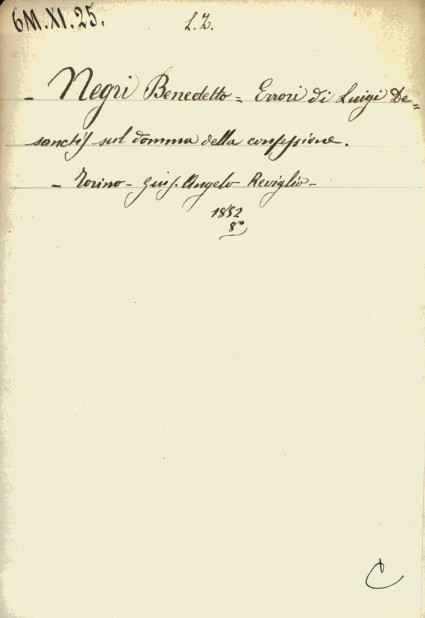 6M.XI.25.
L.Z.
- Negri Benedetto = Errori di Luigi De=
sanctis sul domma della confessione.
- Torino - Gius. Angelo Reviglio -
1852
8°
C